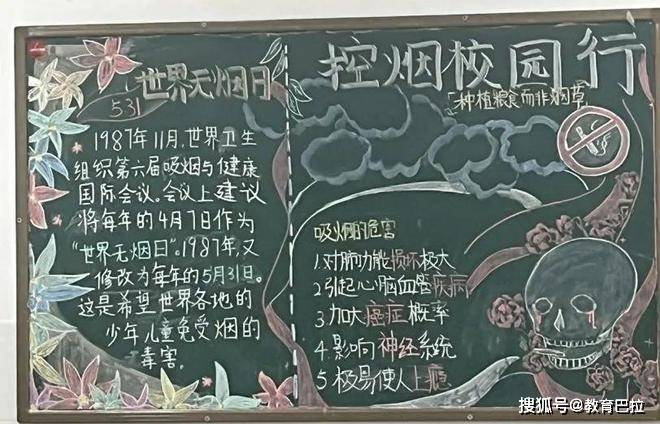 世界无烟日
531
1987年11月,世界卫生
组织第六届吸烟与健康
国际会议。会议上建议
将每年的4月7日作为
“世界无烟日”。1987年,又
修改为每年的5月31日。
这是希望世界各地的
少年儿童免受烟的
毒害。
控烟校园行
「种植粮食而非烟草」
吸烟的危害
1.对肺功能损坏极大
2.引起心脑血管疾病
3.加大癌症概率
4.影响神经系统
5.极易使人上瘾
搜狐号@教育巴拉